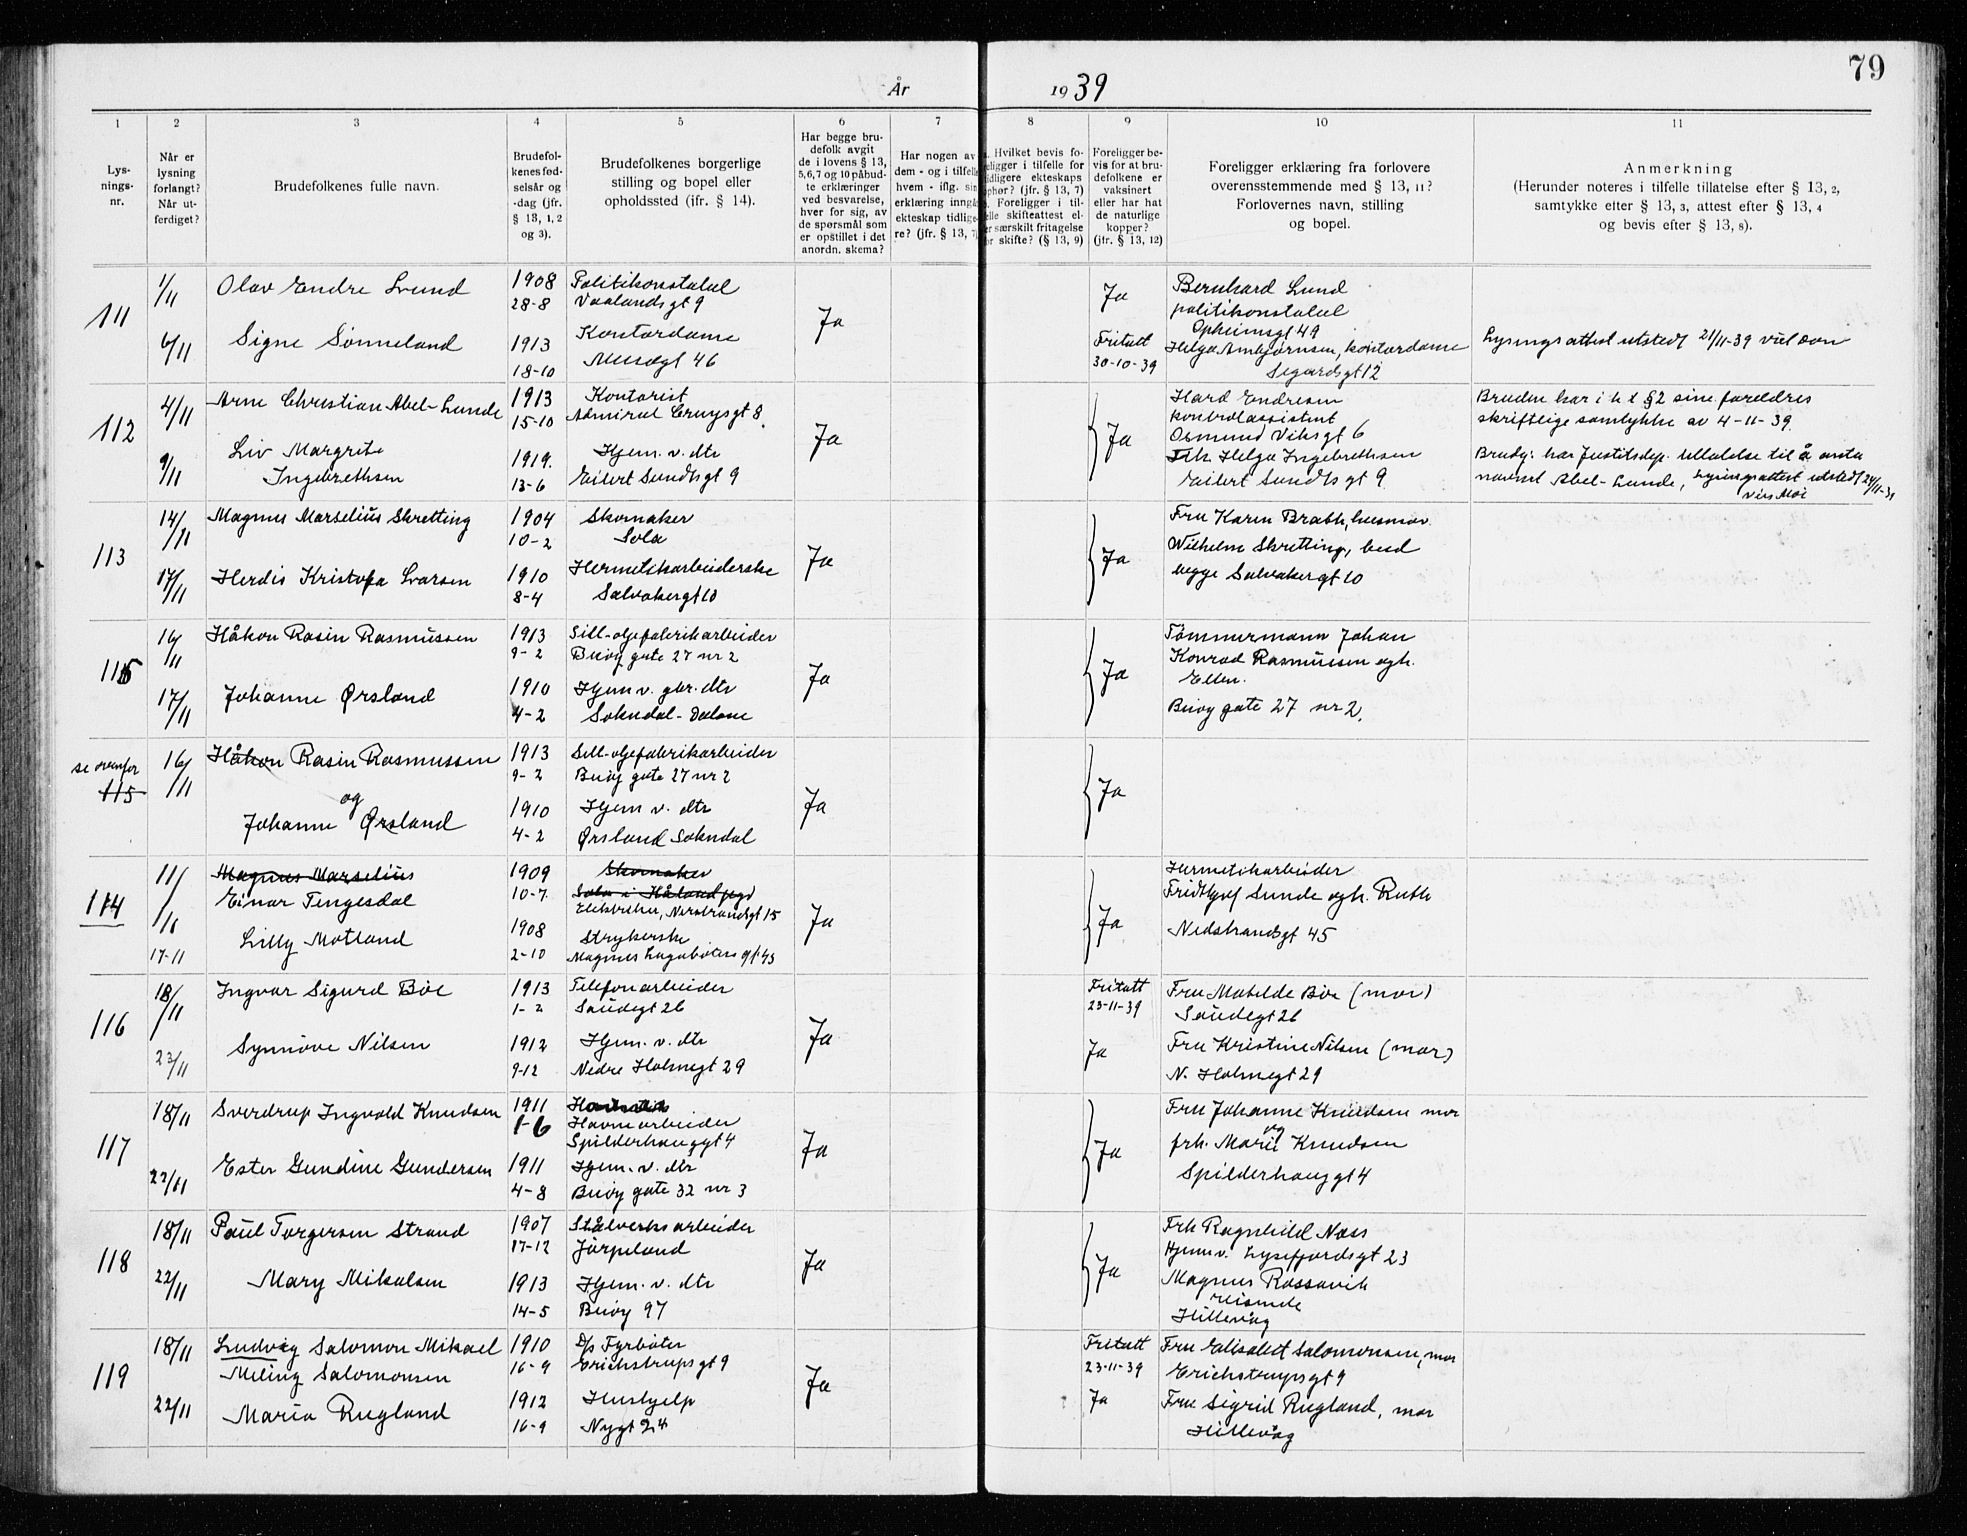 79
År 1939
1 2 3 4 5 6 7 8 9 10 11
Lysnings-nr.
Når er lysning forlangt? Når utferdiget?
Brudefolkenes fulle navn.
Brudefolkenes fødselsår og -dag (jfr. § 13, 1, 2 og 3).
Brudefolkenes borgerlige stilling og bopel eller opholdssted (ifr. § 14).
Har begge brudefolk avgit de i lovens § 13, 5,6,7 og 10 påbudte erklæringer ved besvarelse, hver for sig, av de spørsmål som er opstillet i det anordn. skema?
Har nogen av dem - og i tilfelle hvem - iflg. sin erklæring inngå ekteskap tidligere? (jfr. § 13, 7)
Hvilket bevis foreligger i tilfelle for tidligere ekteskaps ophør? (jfr. § 13, 7) Foreligger i tilfelle skifteattest eller særskilt fritagelse for skifte? (§ 13, 9)
Foreligger bevis for at brudefolkene er vaksinert eller har hat de naturlige kopper? (jfr. § 13, 12)
Foreligger erklæring fra forlovere overensstemmende med § 13, 11? Forlovernes navn, stilling og bopel.
Anmerkning
(Herunder noteres i tilfelle tillatelse efter § 13, 2, samtykke efter § 13, 3, attest efter § 13, 4 og bevis efter § 13, 8).
111
1/11 Olav Endre Lund 1908 28-8 Politikonstabel Vaalandsgt 9
6/11 Signe Sønneland 1913 18-10 Kontordame Musegt 46
Ja
Ja
Fritatt 30-10-39
Bernhard Lund
politikonstabel
Opheimsgt 49
Helga Ambjørnsen, kontordame
Segardsgt 12
Lysningsattest utstedt 21/11-39
112
4/11 Arne Christian Abel-Lunde 1913 15-10 Kontorist Admiral Cruysgt 8.
9/11 Liv Margrite Ingebrethsen 1919. 13-6 Hjem. v. dtr Eilert Sundtsgt 9
Ja
Ja
Hard Endresen
kontrolassistent
Osmund Viksgt 6
Frk Helga Ingebrethsen
Eilert Sundtsgt 9
Bruden har i h t §2 sine foreldres
skriftlige samtykke av 4-11-39.
Brudg. har Justitsdep. tillatelse til å anta
navnet Abel-Lunde, Lysningsattest utstedt 24/11-39
113
14/11 Magnus Marselius Skretting 1904 10-2 Skomaker Sola
17/11 Herdis Kristofa Larsen 1910 8-4 Hermetikarbeiderske Solvakergt 10
Ja
Ja
Fru Karen Bratti, husmor
Wilhelm Skretting, bud
begge Solvakergt 10
115
16/11 Håkon Rasin Rasmussen 1913 9-2 Sill-oljefabrikarbeider Buøy gate 27 nr 2
17/11 Johanne Ørsland 1910 4-2 Hjem v. gbr. dtr Sokndal-Dalane
Ja
Ja
Tømmermann Johan
Konrad Rasmussen ogh.
Ellen.
Buøy gate 27 nr 2.
se ovenfor 115
16/11 Håkon Rasin Rasmussen 1913 9-2 Sill-oljefabrikarbeider Buøy gate 27 nr 2
og
Johanne Ørsland 1910 4-2 Hjem v. dtr Ørsland Sokndal
Ja
Ja
114
11/11 Magnus Marselius
Einar Tengesdal 1909 10-7. Skomaker
Sola i Håland pgd
Elektriker, Nedstrandsgt 15
17-11 Lilly Motland 1908 2-10 Strykerske Magnus Lagabøters gt 43
Ja
Ja
Hermetikarbeider
Fridthjof Sunde ogh. Ruth
Nedstrandsgt 45
116
18/11 Ingvar Sigurd Bøe 1913 1-2 Telefonarbeider Saudegt 26
23/11 Synnøve Nilsen 1912 9-12 Hjem. v. dtr Nedre Holmegt 29
Ja
Fritatt 23-11-39
Ja
Fru Matilde Bøe (mor)
Saudegt 26
Fru Kristine Nilsen (mor)
N. Holmegt 29
117
18/11 Sverdrup Ingvald Knudsen 1911 1-6
Havnearbeider Spilderhauggt 4
22/11 Ester Gundine Gundersen 1911 4-8 Hjem. v. dtr Buøy gate 32 nr 3
Ja
Ja
Fru Johanne Knudsen mor
og
frk. Marie Knudsen
Spilderhauggt 4
118
18/11 Paul Torgersen Strand 1907 17-12 Stålverksarbeider Jørpeland
22/11 Mary Mikalsen 1913 14-5 Hjem. v. dtr Buøy 97
Ja
Ja
Frk Ragnhild Næss
Hjemv. Lysefjordsgt 23
Magnus Rossavik
reisende
Hillevåg
119
18/11 Ludvig Salomon Mikael Meling Salomonsen 1910 16-9 D/s Fyrbøter Erichstrupsgt 9
22/11 Maria Rugland 1912 16-9 Hushjelp Nygt 24
Ja
Fritatt 23-11-39
Ja
Fru Elisabet Salomonsen, mor
Erichstrupsgt 9
Fru Sigrid Rugland, mor
Hillevåg